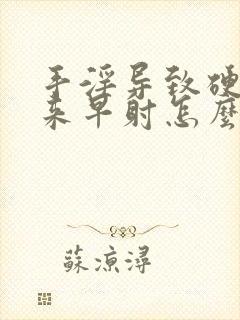 手淫导致硬
来早射怎麽
蘇凉潯